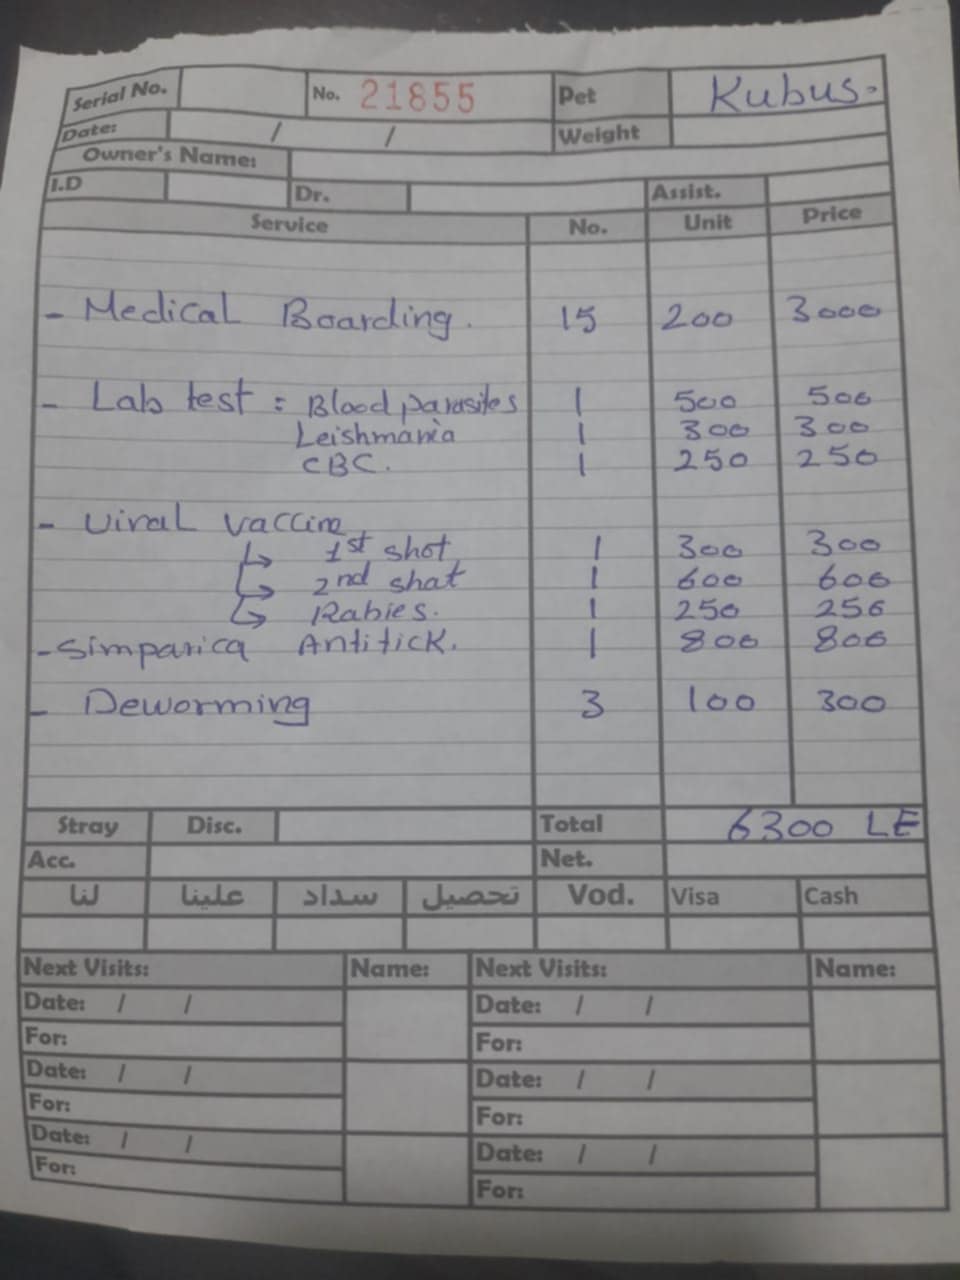 Serial No. No. 21855 Pet Kubus.
Date: / / Weight
Owner's Name:
I.D Dr. Assist.
Service No. Unit Price
- Medical Boarding. 15 200 3000
- Lab test : Blood parasites 1 500 500
Leishmania 1 300 300
CBC. 1 250 250
- Viral vaccine
↳ 1st shot 1 300 300
↳ 2nd shot 1 600 600
↳ Rabies. 1 250 250
- Simparica Antitick. 1 800 800
- Deworming 3 100 300
Stray Disc. Total 6300 LE
Acc. Net.
لنا علينا سداد تحصيل Vod. Visa Cash
Next Visits: Name: Next Visits: Name:
Date: / / Date: / /
For: For:
Date: / / Date: / /
For: For:
Date: / / Date: / /
For: For: